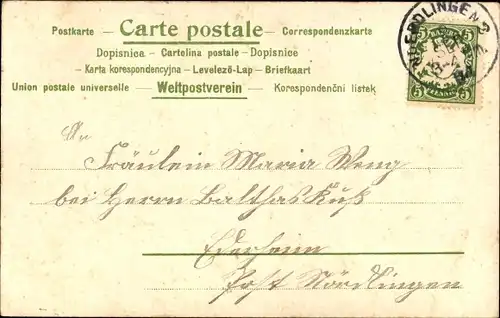 Postkarte – Carte postale – Correspondenzkarte
Dopisnica – Cartolina postale – Dopisnice
Karta korespondencyjna – Levelező-Lap – Briefkaart
Union postale universelle – Weltpostverein – Korespondenční listek
BAYERN
5 5
PFENNIG
An
Fräulein Maria Weng
bei Herrn Balthas Kuß
Ederheim
Post Nördlingen